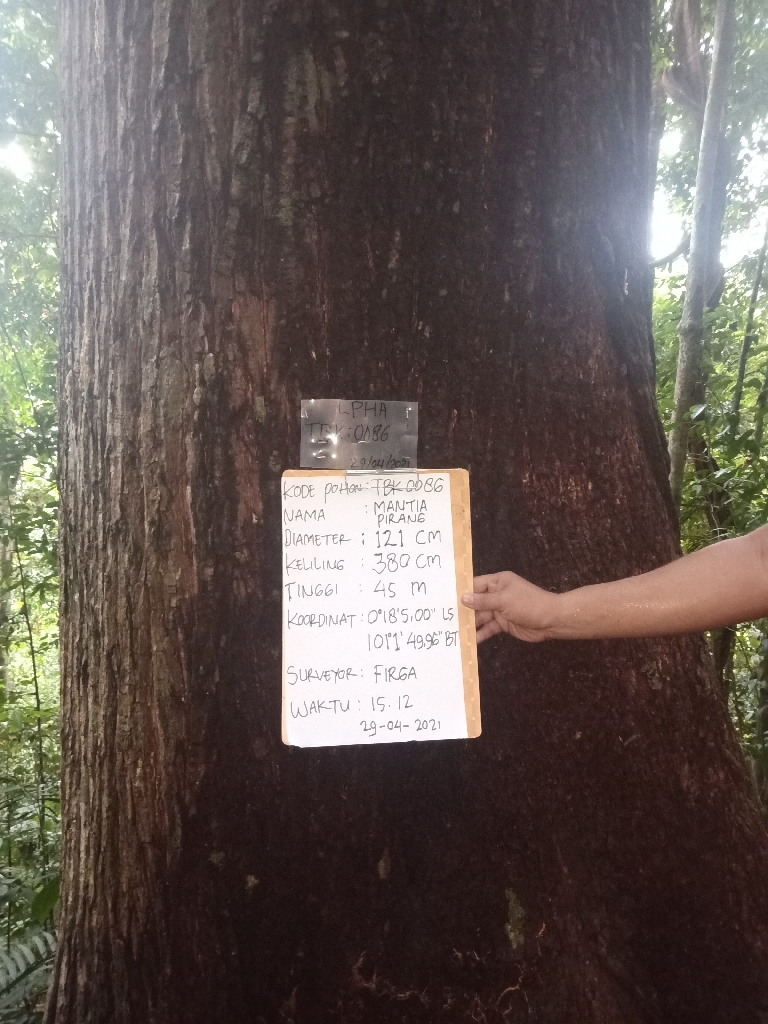 LPHA
TBK:0086
29/04/2021
KODE POHON : TBK 0086
NAMA : MANTIA
PIRANG
DIAMETER : 121 CM
KELILING : 380 CM
TINGGI : 45 M
KOORDINAT : 0°18'5,00" LS
101°1'49,96" BT
SURVEYOR : FIRGA
WAKTU : 15.12
29-04-2021